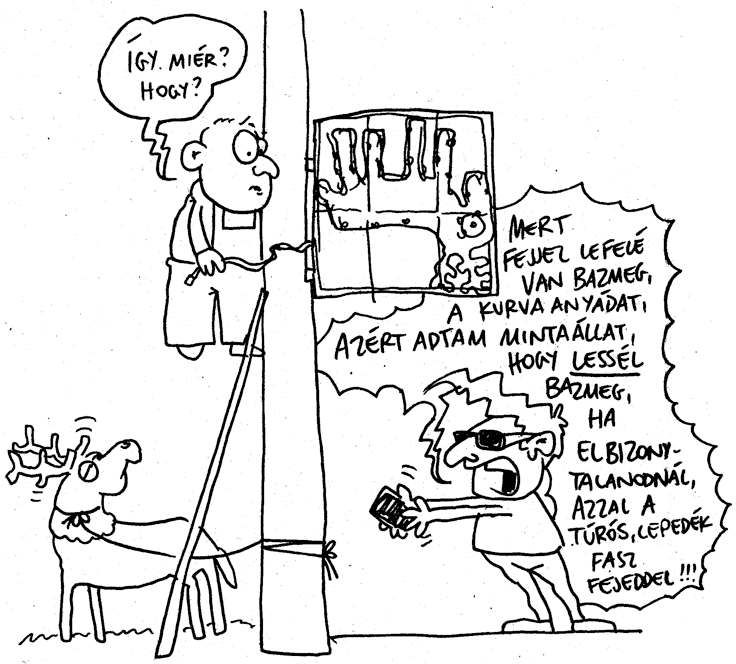 ÍGY. MIÉR?
HOGY?
MERT
FEJJEL LEFELÉ
VAN BAZMEG,
A KURVA ANYÁDAT,
AZÉRT ADTAM MINTAÁLLAT,
HOGY LESSÉL
BAZMEG,
HA
ELBIZONY-
TALANODNÁL,
AZZAL A
TÚRÓS, LEPEDÉK
FASZ
FEJEDDEL!!!